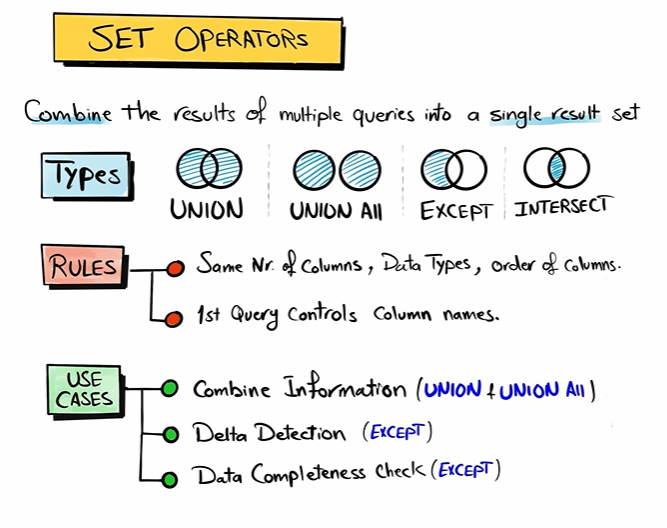 SET OPERATORS
Combine the results of multiple queries into a single result set
Types
UNION
UNION All
EXCEPT
INTERSECT
RULES
Same Nr. of Columns, Data Types, order of Columns.
1st Query Controls Column names.
USE
CASES
Combine Information (UNION & UNION All)
Delta Detection (EXCEPT)
Data Completeness Check (EXCEPT)